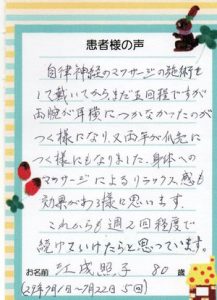 患者様の声
自律神経のマッサージの施術を
して戴いてから、まだ五回程ですが
両腕が耳横につかなかったのが
つく様になり、又両手が爪先に
つく様にもなりました。身体への
マッサージによるリラックス感も
効果がある様に思います。
これからも週2回程度で
続けていけたらと思っています。
お名前 江成照子 80 歳
(29年7月1日~7月22日 5回)